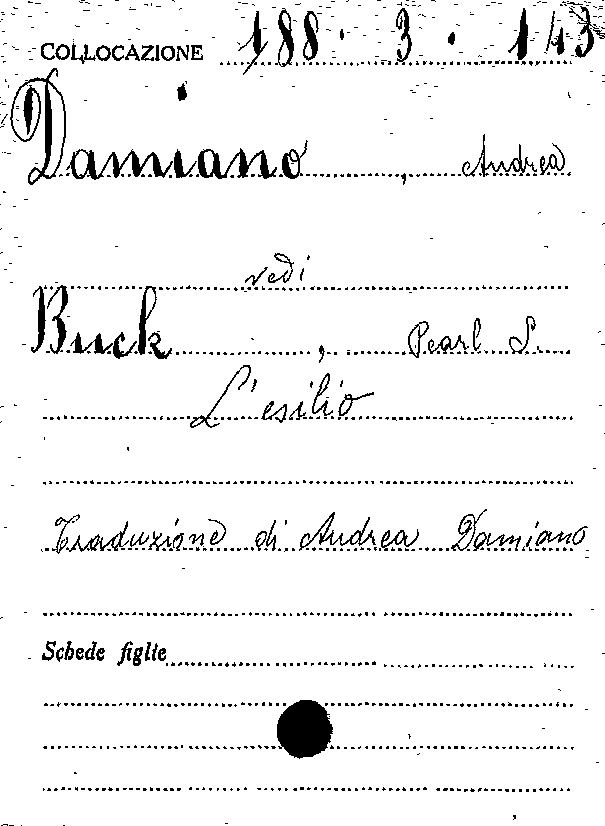 COLLOCAZIONE 188.3.143
Damiano, Andrea
vedi
Buck, Pearl S.
L'esilio
Traduzione di Andrea Damiano
Schede figlie